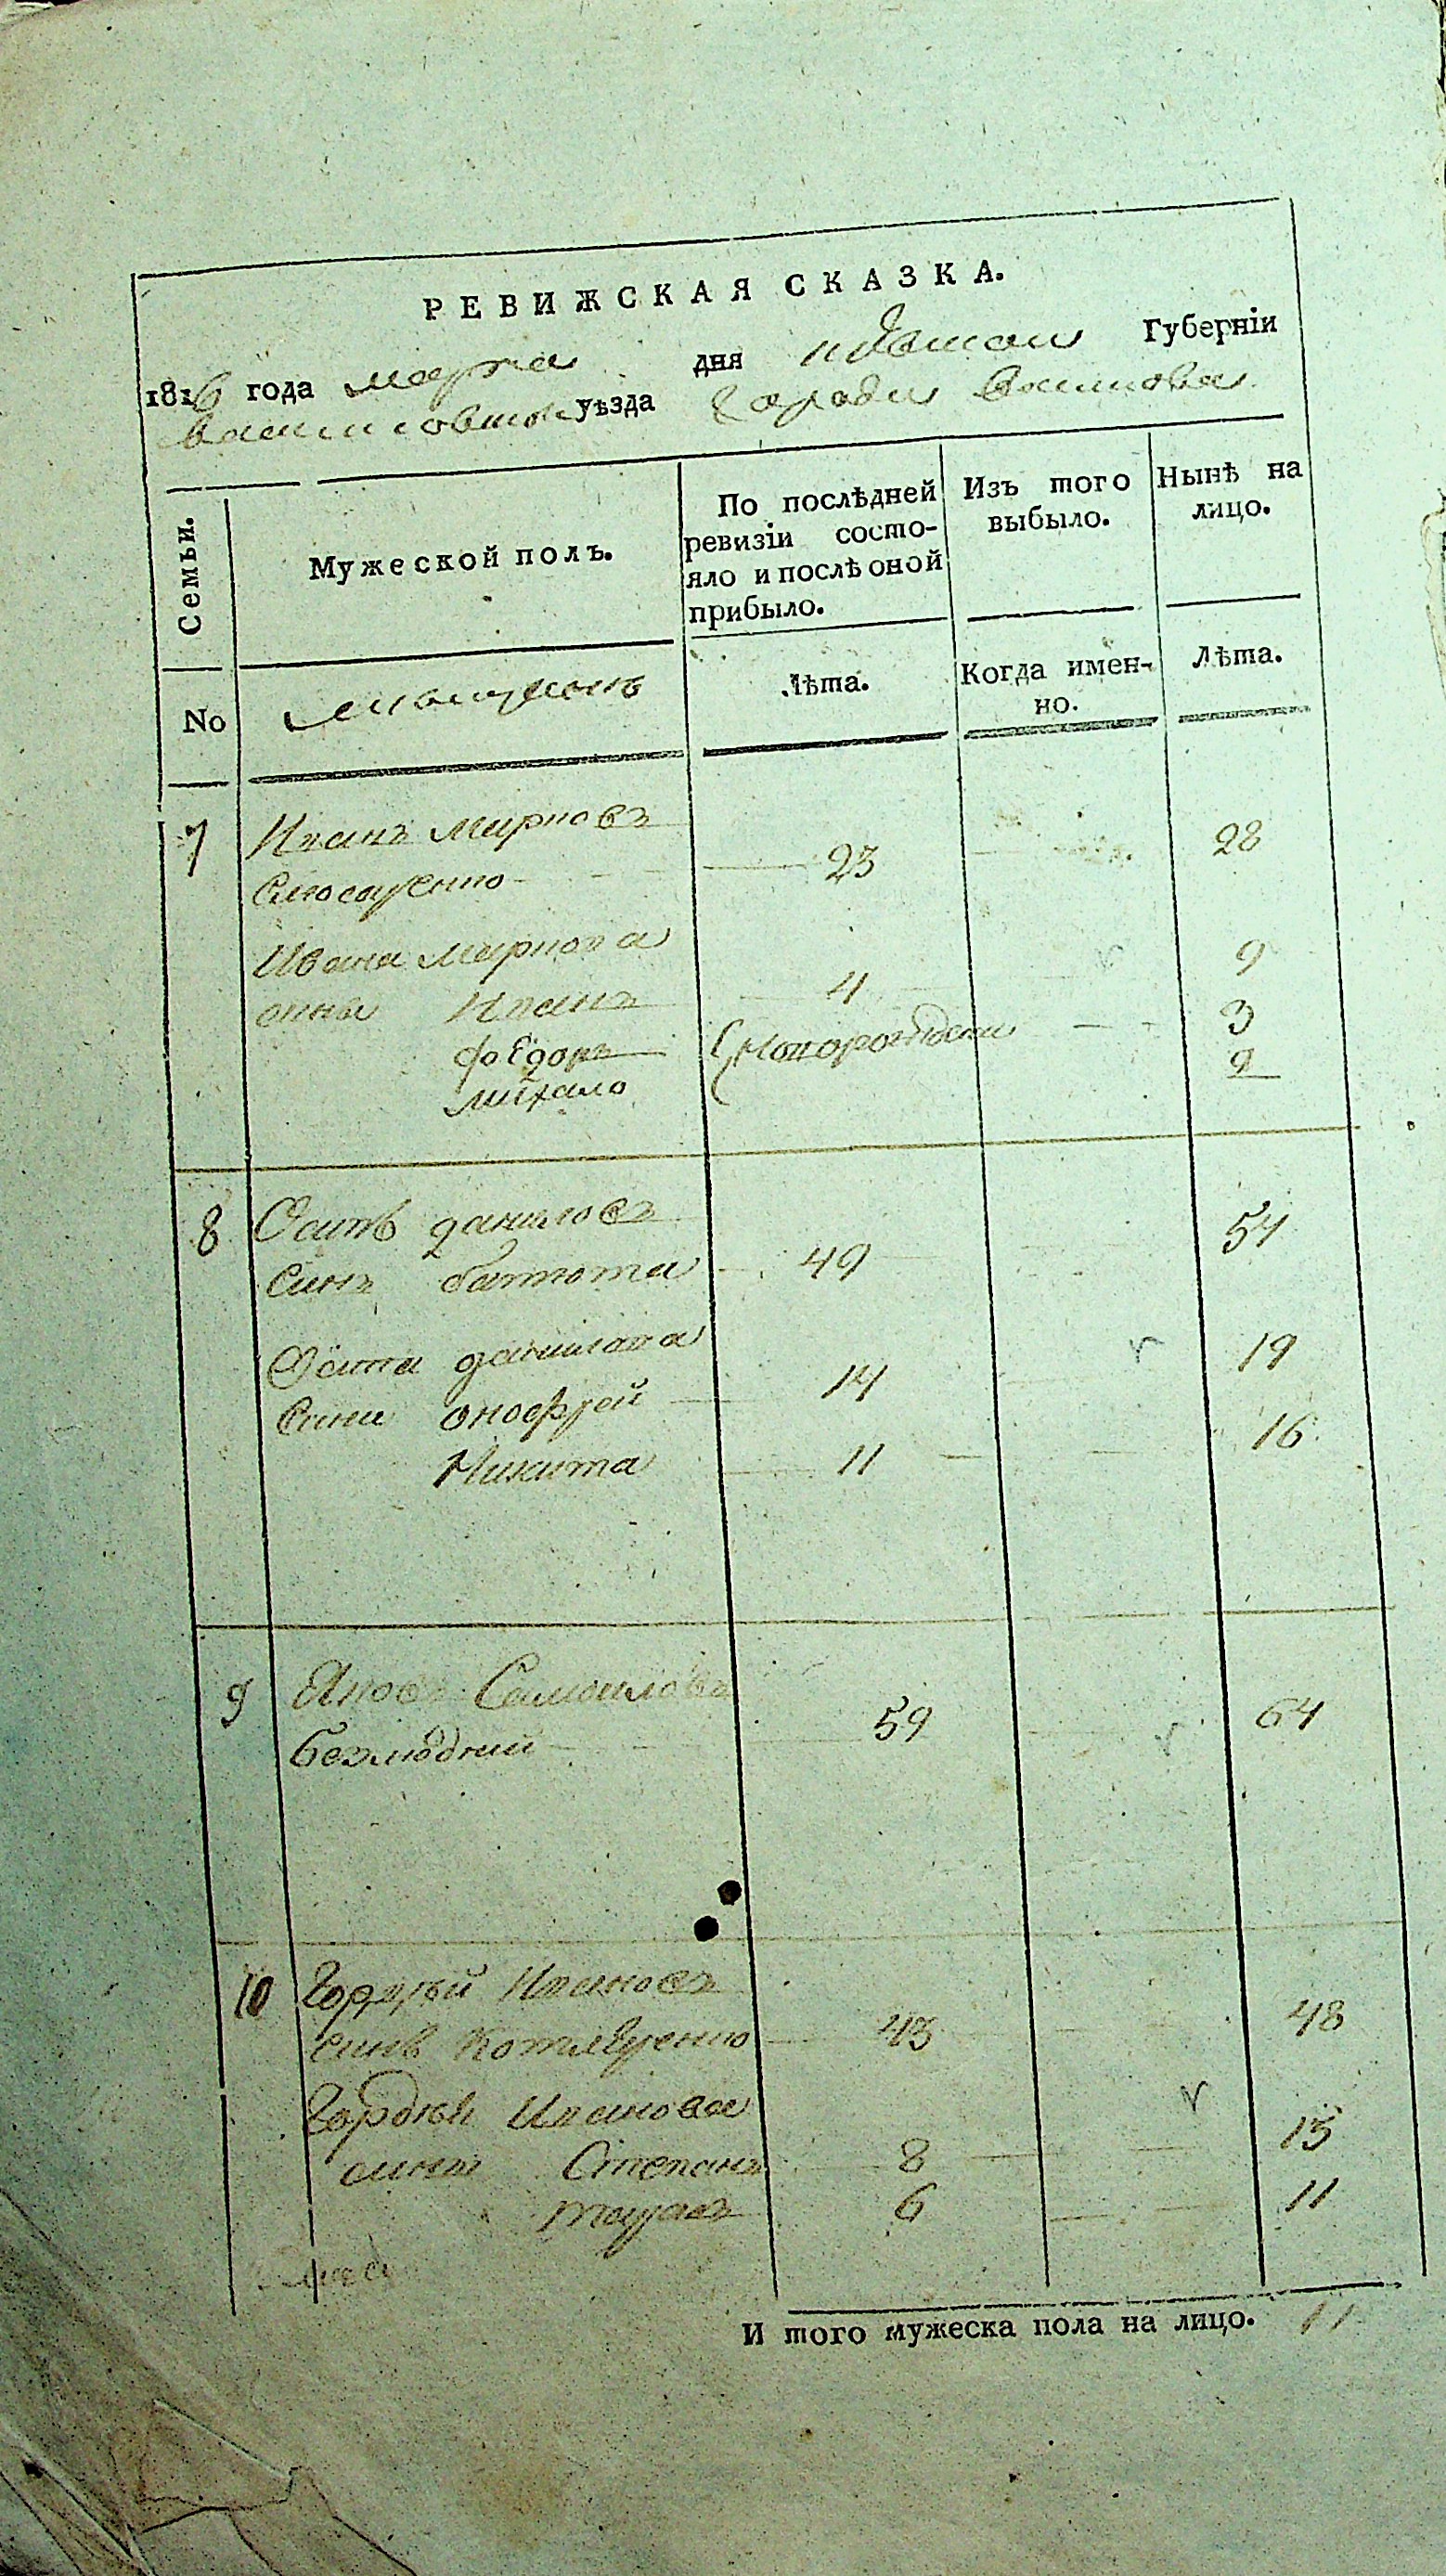 РЕВИЖСКАЯ СКАЗКА.
1816 года марта дня Губерніи
уѣзда города
Семьи.
Мужеской полъ.
По послѣдней ревизіи состо-
яло и послѣ оной
прибыло.
Изъ того
выбыло.
Нынѣ на
лицо.
No
Лѣта.
Когда имен-
но.
Лѣта.
7 Иванъ Марковъ
23 28
Ивана Маркова
сины Иванъ 4 9
Фёдоръ новорожденн 3
михало 2
8 Осипъ даниловъ
синъ 49 54
Осипа данилова
сини онофрей 14 19
Никита 11 16
9 Яковъ Самоиловъ
безлюдний 59 64
10 Гордѣй Ивановъ
синъ Котляренко 43 48
Гордѣя Иванова
сины Степанъ 8 13
тарасъ 6 11
И того мужеска пола на лицо. 11